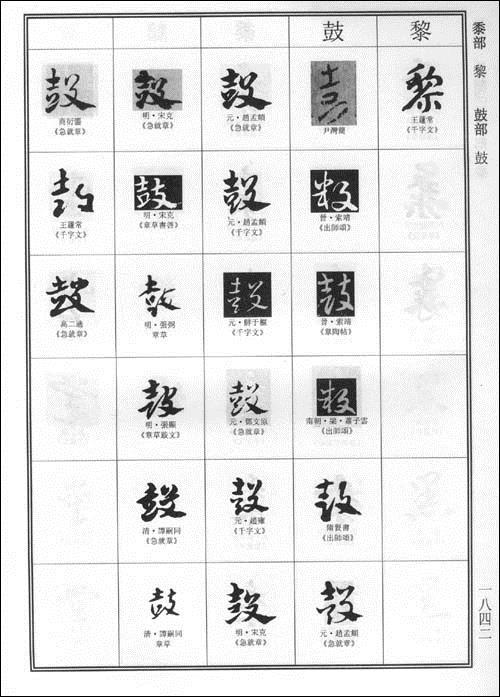 黍部 黎 鼓部 鼓
一八四二
黎
黎
王蘧常
《千字文》
鼓
鼓
尹灣簡
鼓
晉·索靖
《出師頌》
鼓
晉·索靖
陶帖》
鼓
南朝·梁·蕭子雲
《出師頌》
鼓
隋賢書
《出師頌》
鼓
元·趙孟頫
《急就章》
鼓
元·趙孟頫
《急就章》
鼓
元·趙孟頫
《千字文》
鼓
元·鮮于樞
《千字文》
鼓
元·鄧文原
《急就章》
鼓
元·趙雍
《千字文》
鼓
明·宋克
《急就章》
鼓
明·宋克
《急就章》
鼓
明·宋克
《章草書啓》
鼓
明·張弼
章草
鼓
明·張
《章草跋文》
鼓
清·譚嗣同
《急就章》
鼓
清·譚嗣同
章草
鼓
商衍鎏
《急就章》
鼓
王蘧常
《千字文》
鼓
高二適
《急就章》